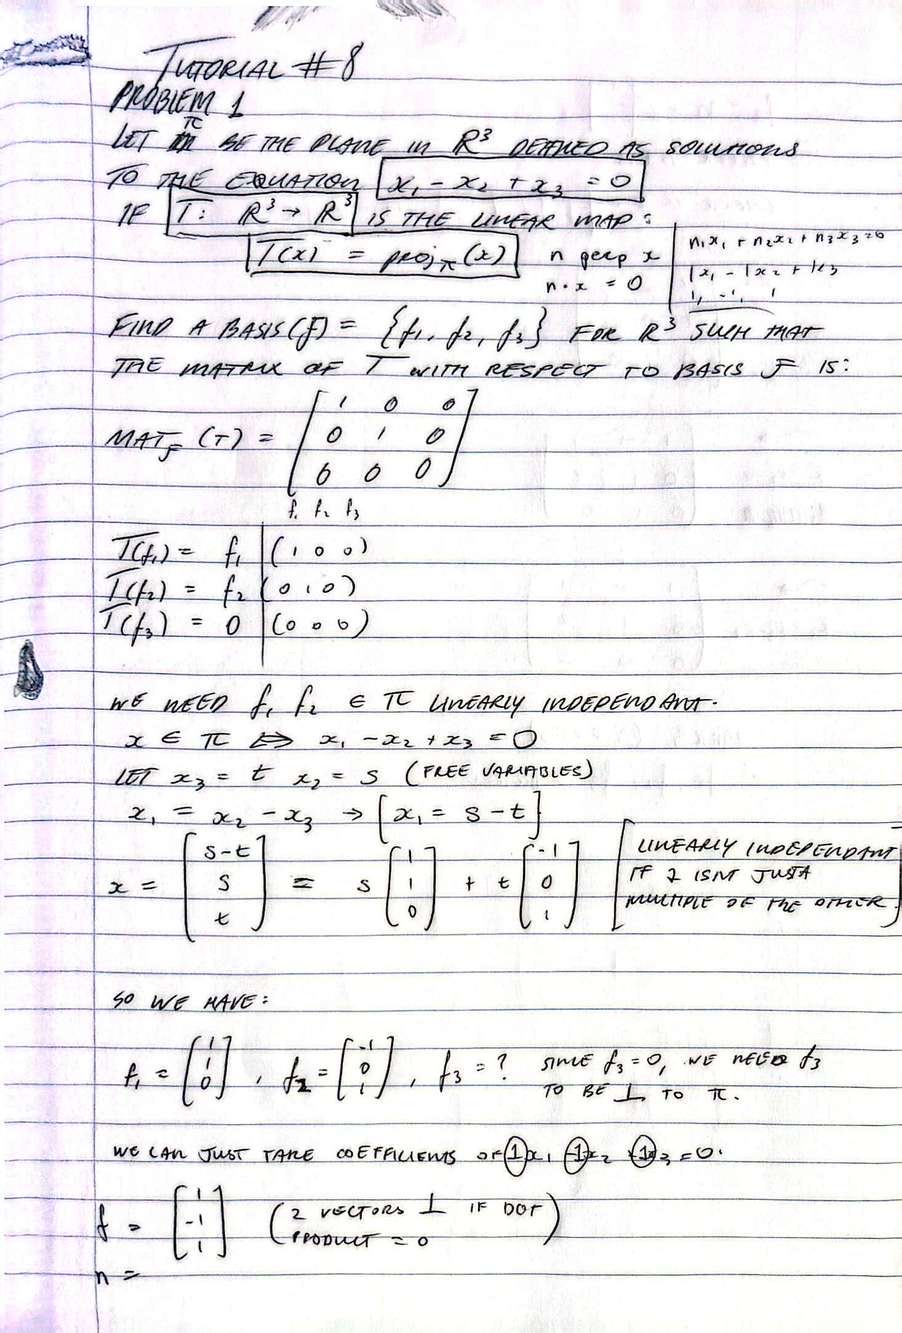 TUTORIAL #8
PROBLEM 1
LET π BE THE PLANE IN R³ DEFINED AS SOLUTIONS
TO THE EQUATION x₁ - x₂ + x₃ = 0
IF T: R³ → R³ IS THE LINEAR MAP:
T(x) = projπ(x)
n perp x
n · x = 0
n₁x₁ + n₂x₂ + n₃x₃ = 0
1x₁ - 1x₂ + 1x₃
1, -1, 1
FIND A BASIS (F) = {f₁, f₂, f₃} FOR R³ SUCH THAT
THE MATRIX OF T WITH RESPECT TO BASIS F IS:
MAT_F (T) =
1 0 0
0 1 0
0 0 0
f₁ f₂ f₃
T(f₁) = f₁ | (1 0 0)
T(f₂) = f₂ | (0 1 0)
T(f₃) = 0 | (0 0 0)
WE NEED f₁ f₂ ∈ π LINEARLY INDEPENDANT.
x ∈ π ⟺ x₁ - x₂ + x₃ = 0
LET x₃ = t x₂ = s (FREE VARIABLES)
x₁ = x₂ - x₃ → [x₁ = s - t]
x = [s-t s t] = s [1 1 0] + t [-1 0 1]
[LINEARLY INDEPENDANT
IF 1 ISNT JUST A
MULTIPLE OF THE OTHER.]
SO WE HAVE:
f₁ = [1 1 0], f₂ = [-1 0 1], f₃ = ? SINCE f₃ = 0, WE NEED f₃
TO BE ⊥ TO π.
WE CAN JUST TAKE COEFFICIENTS OF 1x₁ -1x₂ +1x₃ = 0.
f = [1 -1 1] (2 VECTORS ⊥ IF DOT
PRODUCT = 0)
n =